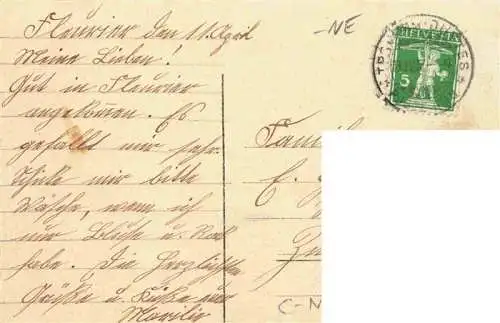 Fleurier den 11. April
Meine Lieben!
Gut in Fleurier
angekommen. Es
gefällt mir sehr.
Schike mir bitte
Wäsche, wenn ich
nur Bluse u. Rock
habe. Die herzlichsten
Grüße u. Küße von
- NE
HELVETIA
5
Famil
C-N